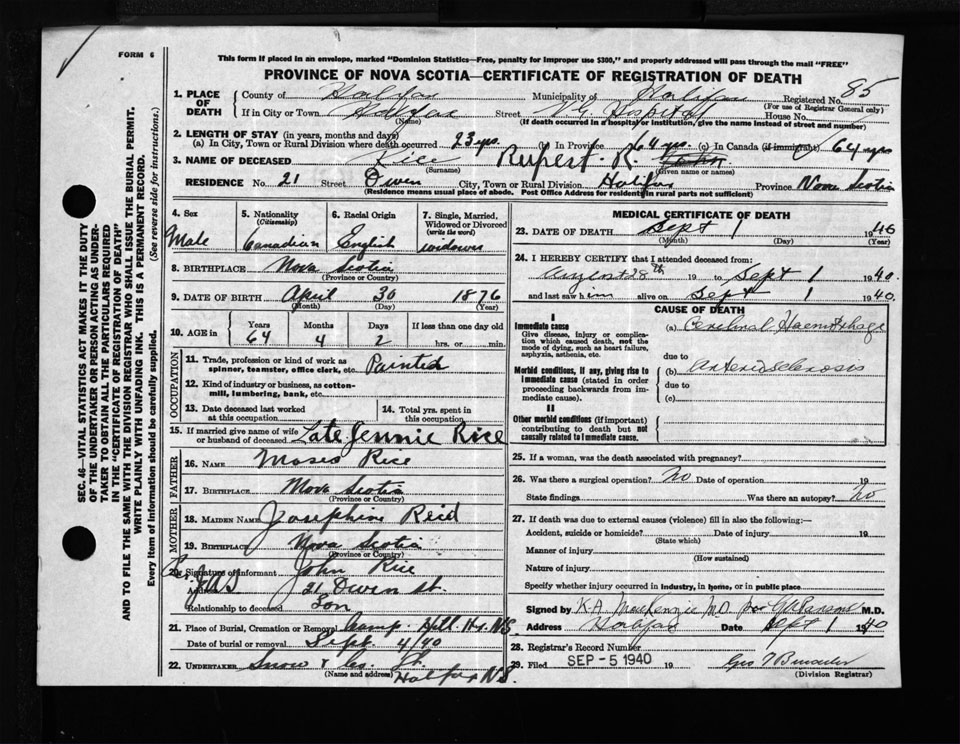 FORM 6
This form if placed in an envelope, marked "Dominion Statistics—Free, penalty for improper use $300," and properly addressed will pass through the mail "FREE"
PROVINCE OF NOVA SCOTIA—CERTIFICATE OF REGISTRATION OF DEATH
85
1. PLACE OF DEATH County of Halifax Municipality of Halifax Registered No.
(For use of Registrar General only)
If in City or Town Halifax Street V.G. Hospital House No.
(Name) (If death occurred in a hospital or institution, give the name instead of street and number)
2. LENGTH OF STAY (in years, months and days)
(a) In City, Town or Rural Division where death occurred 23 yrs. (b) In Province 64 yrs. (c) In Canada (if immigrant) 64 yrs
3. NAME OF DECEASED Rice Rupert R. John
(Surname) (Given name or names)
RESIDENCE No. 21 Street Owen City, Town or Rural Division Halifax Province Nova Scotia
(Residence means usual place of abode. Post Office Address for residents in rural parts not sufficient)
4. Sex Male
5. Nationality (Citizenship) Canadian
6. Racial Origin English
7. Single, Married, Widowed or Divorced (write the word) widower
8. BIRTHPLACE Nova Scotia
(Province or Country)
9. DATE OF BIRTH April 30 1876
(Month) (Day) (Year)
10. AGE in Years Months Days If less than one day old
64 4 2 hrs. or min.
OCCUPATION
11. Trade, profession or kind of work as spinner, teamster, office clerk, etc. Painter
12. Kind of industry or business, as cotton-mill, lumbering, bank, etc.
13. Date deceased last worked at this occupation
14. Total yrs. spent in this occupation
15. If married give name of wife or husband of deceased Late Jennie Rice
FATHER
16. NAME Moses Rice
17. BIRTHPLACE Nova Scotia
(Province or Country)
MOTHER
18. MAIDEN NAME Josephine Reid
19. BIRTHPLACE Nova Scotia
(Province or Country)
20. Signature of informant John Rice
Address 21 Owen St.
Relationship to deceased Son
21. Place of Burial, Cremation or Removal Camp Hill Hx. N.S.
Date of burial or removal Sept. 4/40
22. UNDERTAKER Snow & Co. Lt.
(Name and address) Halifax N.S.
MEDICAL CERTIFICATE OF DEATH
23. DATE OF DEATH Sept 1 1940
(Month) (Day) (Year)
24. I HEREBY CERTIFY that I attended deceased from:
August 28th 19 to Sept 1 1940.
and last saw him alive on Sept 1 1940.
CAUSE OF DEATH
I
Immediate cause
Give disease, injury or complication which caused death, not the mode of dying, such as heart failure, asphyxia, asthenia, etc.
(a) Cerebral Haemorrhage
due to
Morbid conditions, if any, giving rise to immediate cause (stated in order proceeding backwards from immediate cause).
(b) Arteriosclerosis
due to
(c)
II
Other morbid conditions (if important) contributing to death but not causally related to immediate cause.
25. If a woman, was the death associated with pregnancy?
26. Was there a surgical operation? No Date of operation 19
State findings Was there an autopsy? No
27. If death was due to external causes (violence) fill in also the following:—
Accident, suicide or homicide? Date of injury 19
(State which)
Manner of injury
(How sustained)
Nature of injury
Specify whether injury occurred in industry, in home, or in public place
Signed by K.A. MacKenzie M.D. for M.D.
Address Halifax Date Sept 1 1940
28. Registrar's Record Number
29. Filed SEP - 5 1940 19
(Division Registrar)
SEC. 46—VITAL STATISTICS ACT MAKES IT THE DUTY
OF THE UNDERTAKER OR PERSON ACTING AS UNDER-
TAKER TO OBTAIN ALL THE PARTICULARS REQUIRED
IN THE "CERTIFICATE OF REGISTRATION OF DEATH"
AND TO FILE THE SAME WITH THE DIVISION REGISTRAR WHO SHALL ISSUE THE BURIAL PERMIT.
WRITE PLAINLY WITH UNFADING INK. THIS IS A PERMANENT RECORD.
Every item of information should be carefully supplied. (See reverse side for instructions.)